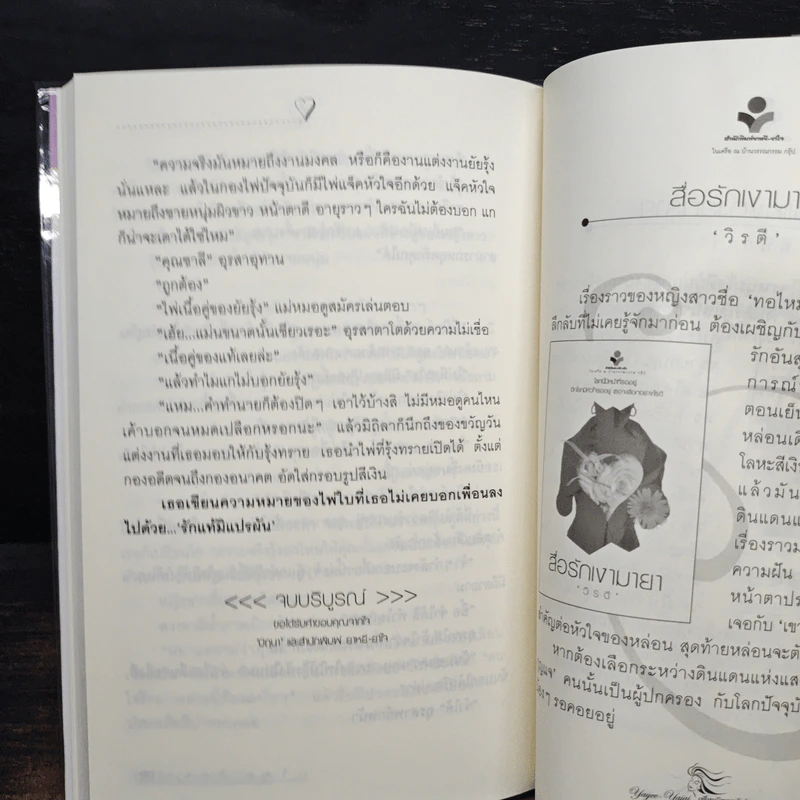 "ความจริงมันหมายถึงงานมงคล หรือก็คืองานแต่งงานยัยรุ้ง
นั่นแหละ แล้วในกองไฟ่ปัจจุบันก็มีไพ่แจ็คหัวใจอีกด้วย แจ็คหัวใจ
หมายถึงชายหนุ่มผิวขาว หน้าตาดี อายุราวๆ ใครฉันไม่ต้องบอก แก
ก็น่าจะเดาได้ใช่ไหม"
"คุณชาลี" อุรสาอุทาน
"ถูกต้อง"
"ไพ่เนื้อคู่ของยัยรุ้ง" แม่หมอดูสมัครเล่นตอบ
"เฮ้ย...แม่นขนาดนั้นเชียวเรอะ" อุรสาตาโตด้วยความไม่เชื่อ
"เนื้อคู่ของแท้เลยล่ะ"
"แล้วทำไมแกไม่บอกยัยรุ้ง"
"แหม...คำทำนายก็ต้องปิดๆ เอาไว้บ้างสิ ไม่มีหมอดูคนไหน
เค้าบอกจนหมดเปลือกหรอกนะ" แล้วมิถิลาก็นึกถึงของขวัญวัน
แต่งงานที่เธอมอบให้กับรุ้งทราย เธอนำไพ่ที่รุ้งทรายเปิดได้ ตั้งแต่
กองอดีตจนถึงกองอนาคต อัดใส่กรอบรูปสีเงิน
เธอเขียนความหมายของไพ่ใบที่เธอไม่เคยบอกเพื่อนลง
ไปด้วย...'รักแท้มิแปรผัน'
<<< จบบริบูรณ์ >>>
ขอได้รับคำขอบคุณจากใจ
และสำนักพิมพ์ ยาหยี-ยาใจ
สำนักพิมพ์ยาหยี-ยาใจ
ในเครือ ณ บ้านวรรณกรรม กรุ๊ป
สื่อรักเงามายา
'วิรตี'
เรื่องราวของหญิงสาวชื่อ 'ทอไหม
ลึกลับที่ไม่เคยรู้จักมาก่อน ต้องเผชิญกับ
รักอันสุ
การณ์
ตอนเย็น
หล่อนเดิ
โลหะสีเงิน
แล้วมัน
ดินแดนแ
เรื่องราวม
ความฝัน
หน้าตาประ
เจอกับ 'เขา
สื่อรักเงามายา
'วิรตี'
สำคัญต่อหัวใจของหล่อน สุดท้ายหล่อนจะตั
หากต้องเลือกระหว่างดินแดนแห่งแส
คนนั้นเป็นผู้ปกครอง กับโลกปัจจุบั
รอคอยอยู่
Yayee-Yajai